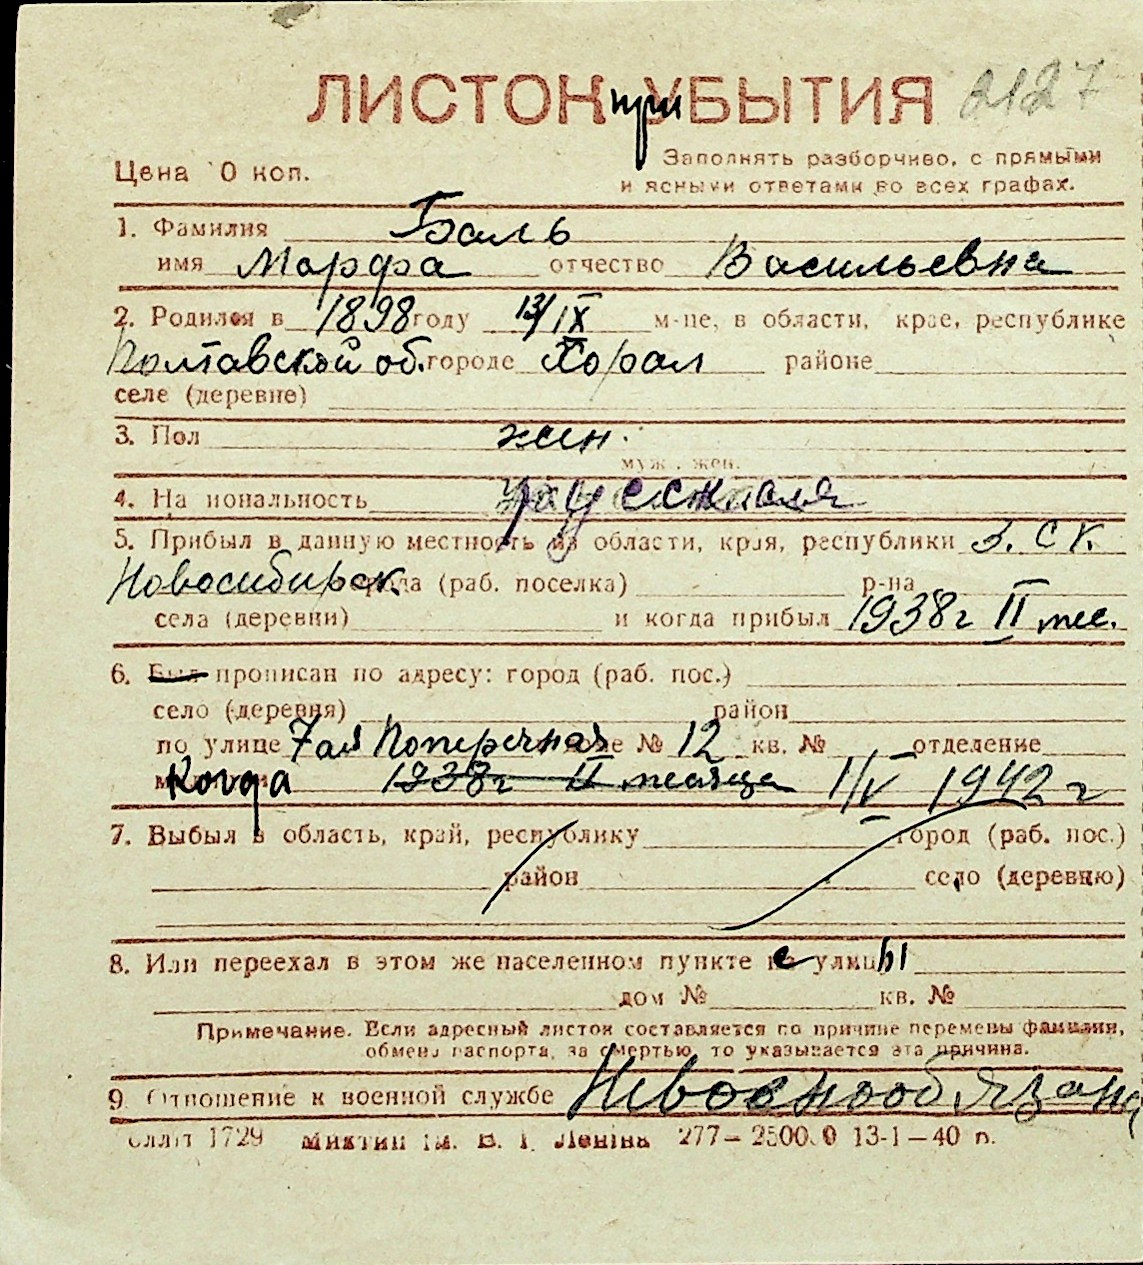 ЛИСТОК при УБЫТИЯ 2127
Цена 10 коп.
Заполнять разборчиво, с прямыми
и ясными ответами во всех графах.
1. Фамилия Баль
имя Марфа отчество Васильевна
2. Родился в 1898 году 13/IX м-це, в области, крае, республике
Полтавской об. городе Хорол районе
селе (деревне)
3. Пол жен.
муж., жен.
4. Национальность
5. Прибыл в данную местность из области, края, республики З. С К.
Новосибирск. города (раб. поселка) р-на
села (деревни) и когда прибыл 1938 г II мес.
6. Был прописан по адресу: город (раб. пос.)
село (деревня) район
по улице 7ая Поперечная доме № 12 кв. № отделение
милиции Когда 1938 г II месяца 1/IV 1942 г
7. Выбыл в область, край, республику город (раб. пос.)
район село (деревню)
8. Или переехал в этом же населенном пункте с улицы
дом № кв. №
Примечание. Если адресный листок составляется по причине перемены фамилии,
обмена паспорта, за смертью, то указывается эта причина.
9. Отношение к военной службе Невоеннообязана
1729 ім. В. І. Леніна 277— 13-1—40 р.